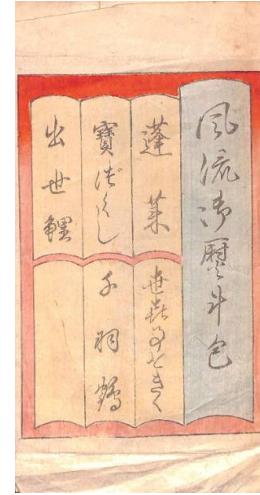 風流御暦斗包
蓬莱
世喜のせきく
寳つくし
千羽鶴
出世鯉